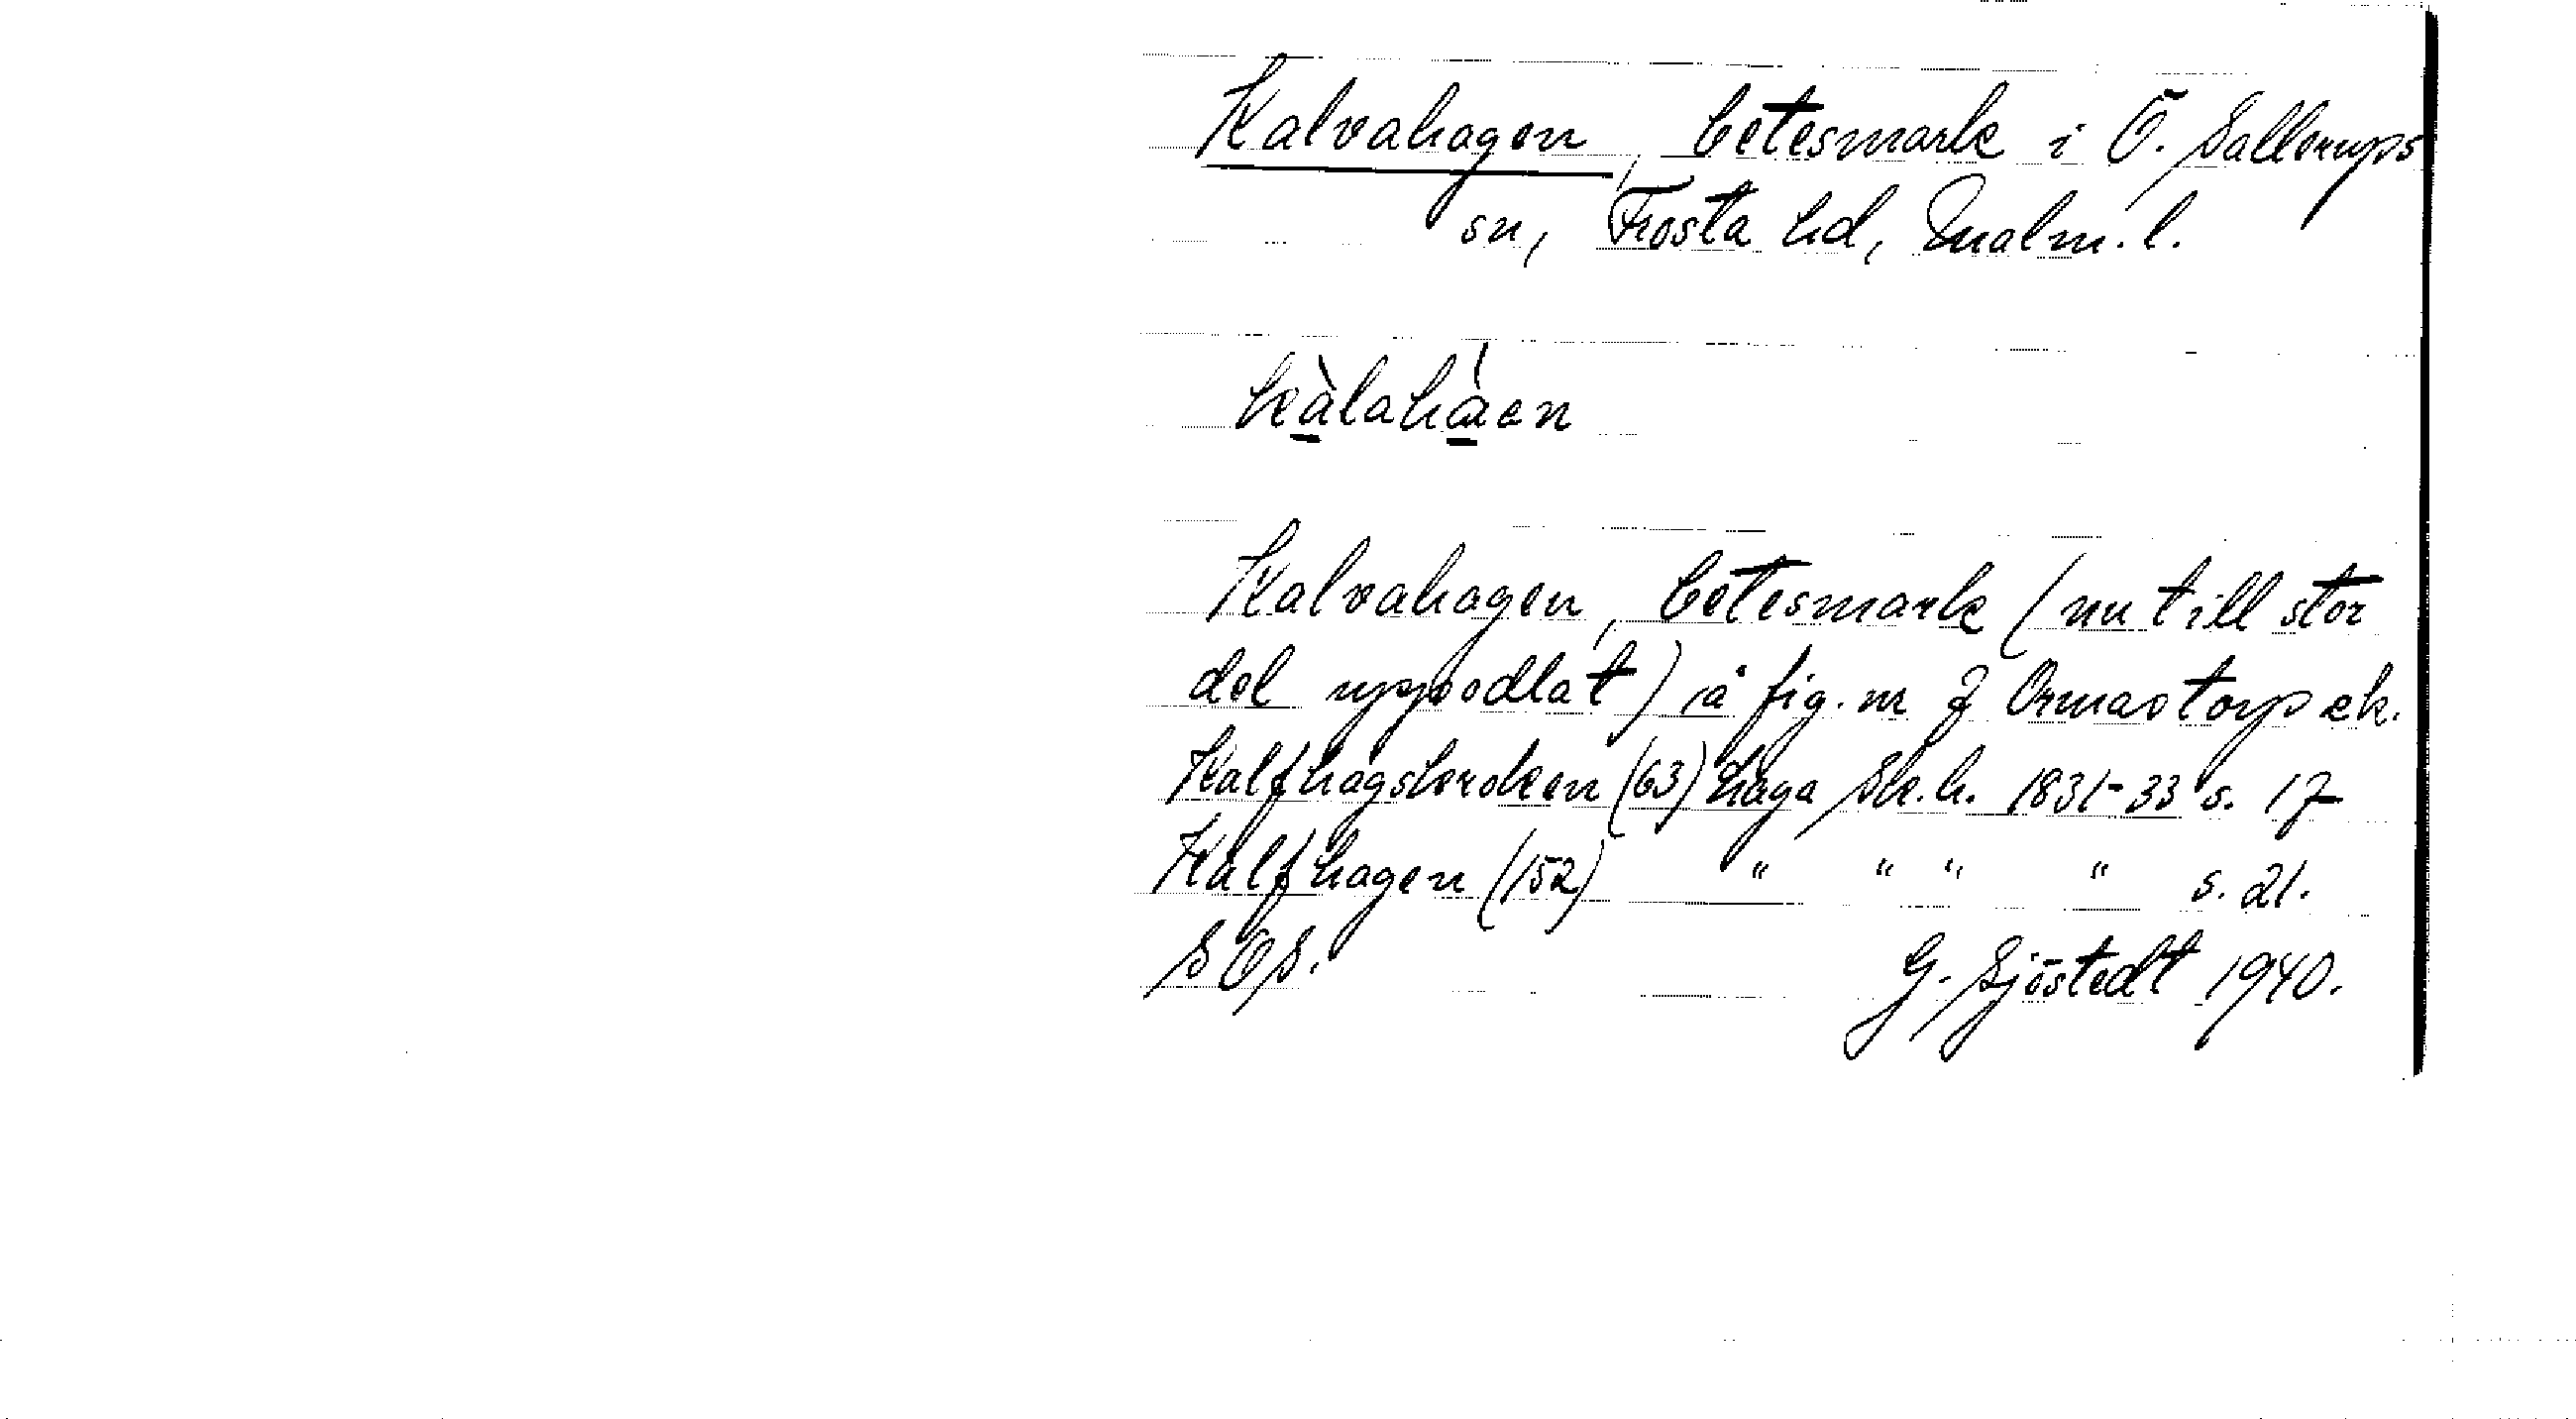 Kalvahagen, betesmark i Ö. Sallerups
sn, Frosta hd, Malm. l.
kàlahàen
Kalvahagen, betesmark (nu till stor
del uppodlat) å fig. nr 7 Ormastorp ek.
Kalfhagskroken (63) Haga Sk.h. 1831-33 s. 17
Kalfhagen (152) " " " " s. 21.
SOS. G. Sjöstedt 1940.